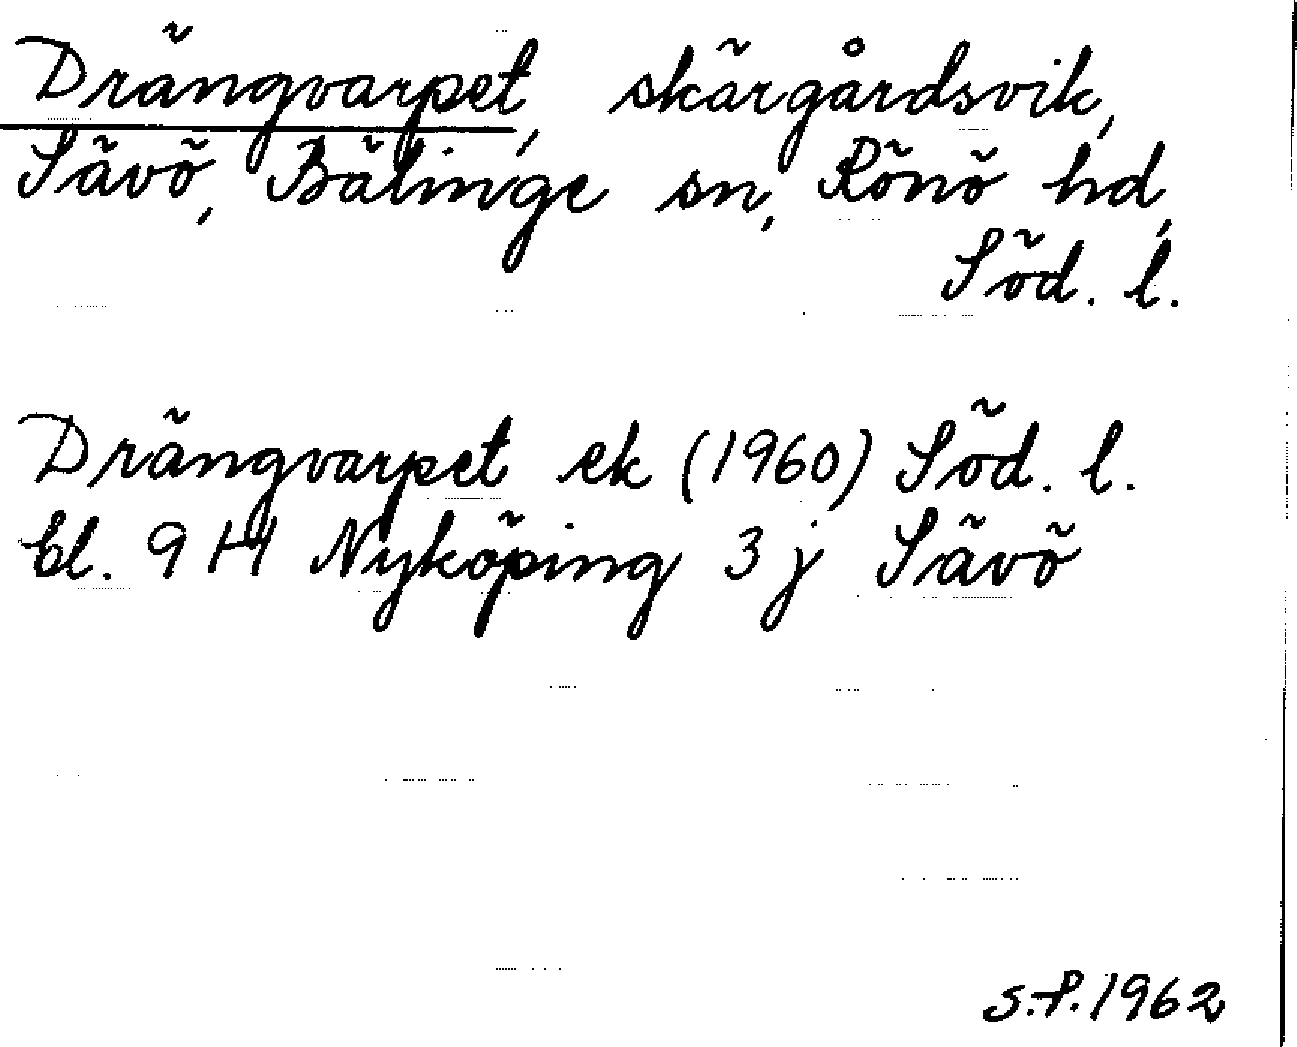 Drängvarpet, skärgårdsvik,
Sävö, Bälinge sn, Rönö hd,
Söd. l.
Drängvarpet ek (1960) Söd. l.
bl. 9 H Nyköping 3 j Sävö
S.P. 1962